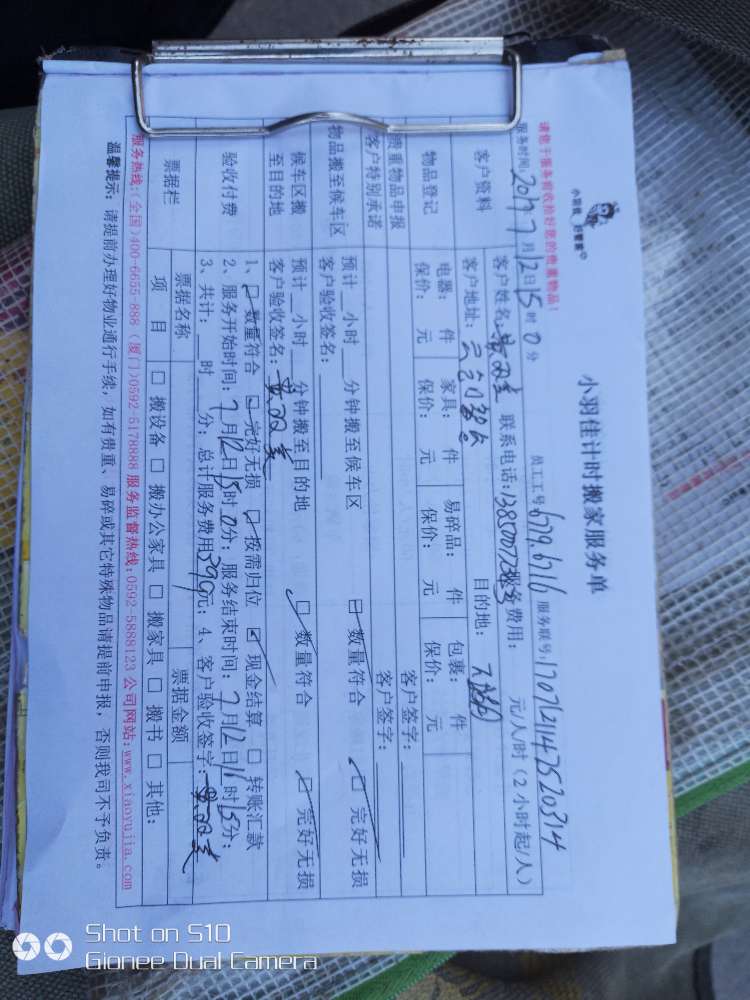 小羽佳 好管家
小羽佳计时搬家服务单
请您于服务前收拾好您的贵重物品！
服务时间：2017 7月12日15时0分 员工工号 6779.6716 服务联号：1707121143520314
客户资料
客户姓名： 联系电话： 服务费用： 元/人/时（2小时起/人）
客户地址： 目的地：
物品登记
电器： 件 家具： 件 易碎品： 件 包裹： 件
保价： 元 保价： 元 保价： 元 保价： 元
贵重物品申报 客户签字：
客户特别承诺 客户签字：
物品搬至候车区
预计 小时 分钟搬至候车区 □ 数量符合 □ 完好无损
客户验收签名：
候车区搬至目的地
预计 小时 分钟搬至目的地 □ 数量符合 □ 完好无损
客户验收签名：
验收付费
1、□ 数量符合 □ 完好无损 □ 按需归位 □ 现金结算 □ 转账汇款
2、服务开始时间：7月12日15时0分；服务结束时间：7月12日16时15分；
3、共计： 时 分；总计服务费用390元；4、客户验收签字：
票据栏
票据名称 票据金额
项 目 □ 搬设备 □ 搬办公家具 □ 搬家具 □ 搬书 □ 其他：
服务热线：(全国)400-6655-888 (厦门)0592-5178888 服务监督热线：0592-5888123 公司网站：www.xiaoyujia.com
温馨提示：请提前办理好物业通行手续，如有贵重、易碎或其它特殊物品请提前申报，否则我司不予负责。
Shot on S10
Gionee Dual Camera